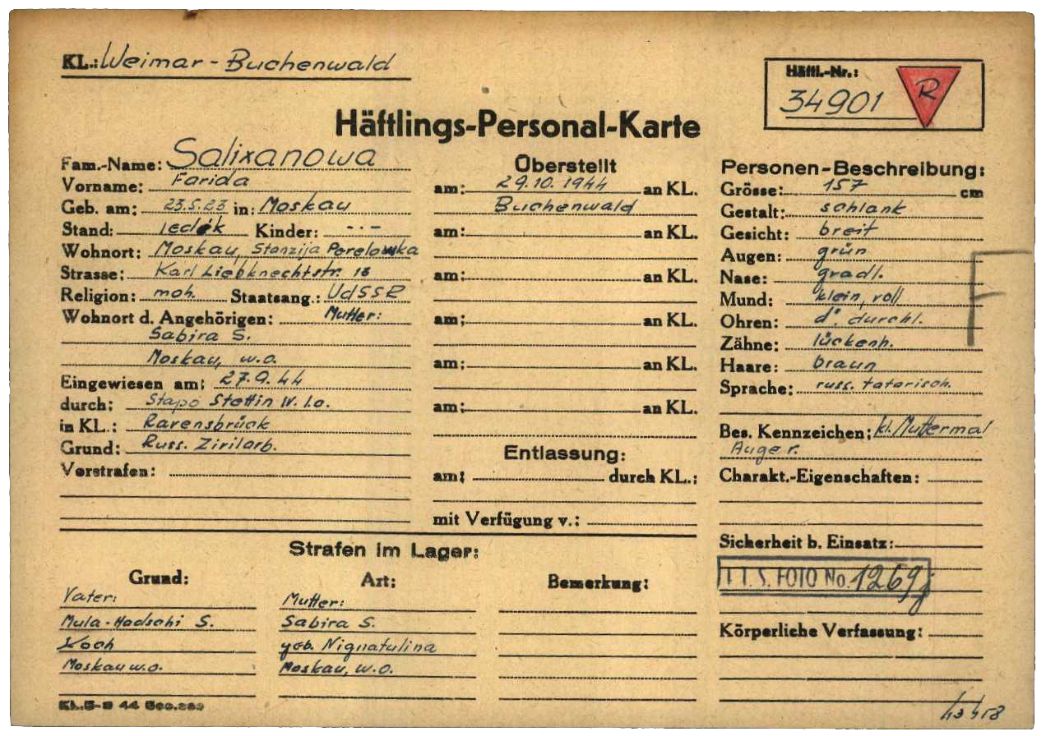 KL.: Weimar - Buchenwald
Häftl.-Nr.:
34901
R
Häftlings-Personal-Karte
Fam.-Name: Salixanowa
Vorname: Farida
Geb. am: 23.5.23 in: Moskau
Stand: ledik Kinder: -.-
Wohnort: Moskau, Stanzija Perelowka
Strasse: Karl Liebknechtstr. 18
Religion: moh. Staatsang.: UdSSR
Wohnort d. Angehörigen: Mutter:
Sabira S.
Moskau, w.o.
Eingewiesen am: 27.9.44
durch: Stapo Stettin IV. 1.a.
in KL.: Ravensbrück
Grund: Russ. Zivilarb.
Vorstrafen:
Überstellt
am: 29.10.1944 an KL.
Buchenwald
am: an KL.
am: an KL.
am: an KL.
am: an KL.
am: an KL.
Entlassung:
am: durch KL.:
mit Verfügung v.:
Personen-Beschreibung:
Grösse: 157 cm
Gestalt: schlank
Gesicht: breit
Augen: grün
Nase: gradl.
Mund: klein, voll
Ohren: d. durchl.
Zähne: lückenh.
Haare: braun
Sprache: russ. tatarisch.
Bes. Kennzeichen: kl. Muttermal
Auge r.
Charakt.-Eigenschaften:
Sicherheit b. Einsatz:
I.T.S. FOTO No. 1269
Körperliche Verfassung:
Strafen im Lager:
Grund: Art: Bemerkung:
Vater:
Mula-Hadschi S.
Koch
Moskau w.o.
Mutter:
Sabira S.
geb. Nignatulina
Moskau, w.o.